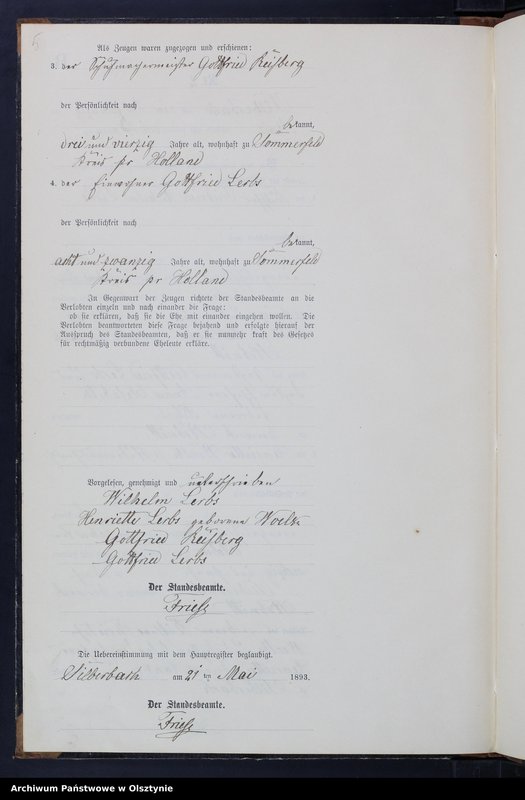 Als Zeugen waren zugezogen und erschienen:
3. der Schuhmachermeister Gottfried Reisberg
der Persönlichkeit nach
bekannt,
drei und vierzig Jahre alt, wohnhaft zu Sommerfeld
Kreis pr Holland
4. der Einwohner Gottfried Lerbs
der Persönlichkeit nach
bekannt,
acht und zwanzig Jahre alt, wohnhaft zu Sommerfeld
Kreis pr Holland
In Gegenwart der Zeugen richtete der Standesbeamte an die
Verlobten einzeln und nach einander die Frage:
ob sie erklären, daß sie die Ehe mit einander eingehen wollen. Die
Verlobten beantworteten diese Frage bejahend und erfolgte hierauf der
Ausspruch des Standesbeamten, daß er sie nunmehr kraft des Gesetzes
für rechtmäßig verbundene Eheleute erkläre.
Vorgelesen, genehmigt und unterschrieben
Wilhelm Lerbs
Henriette Lerbs geborene Woelki
Gottfried Reisberg
Gottfried Lerbs
Der Standesbeamte.
Friese
Die Uebereinstimmung mit dem Hauptregister beglaubigt.
Silberbach am 21 ten Mai 1893.
Der Standesbeamte.
Friese
Archiwum Państwowe w Olsztynie